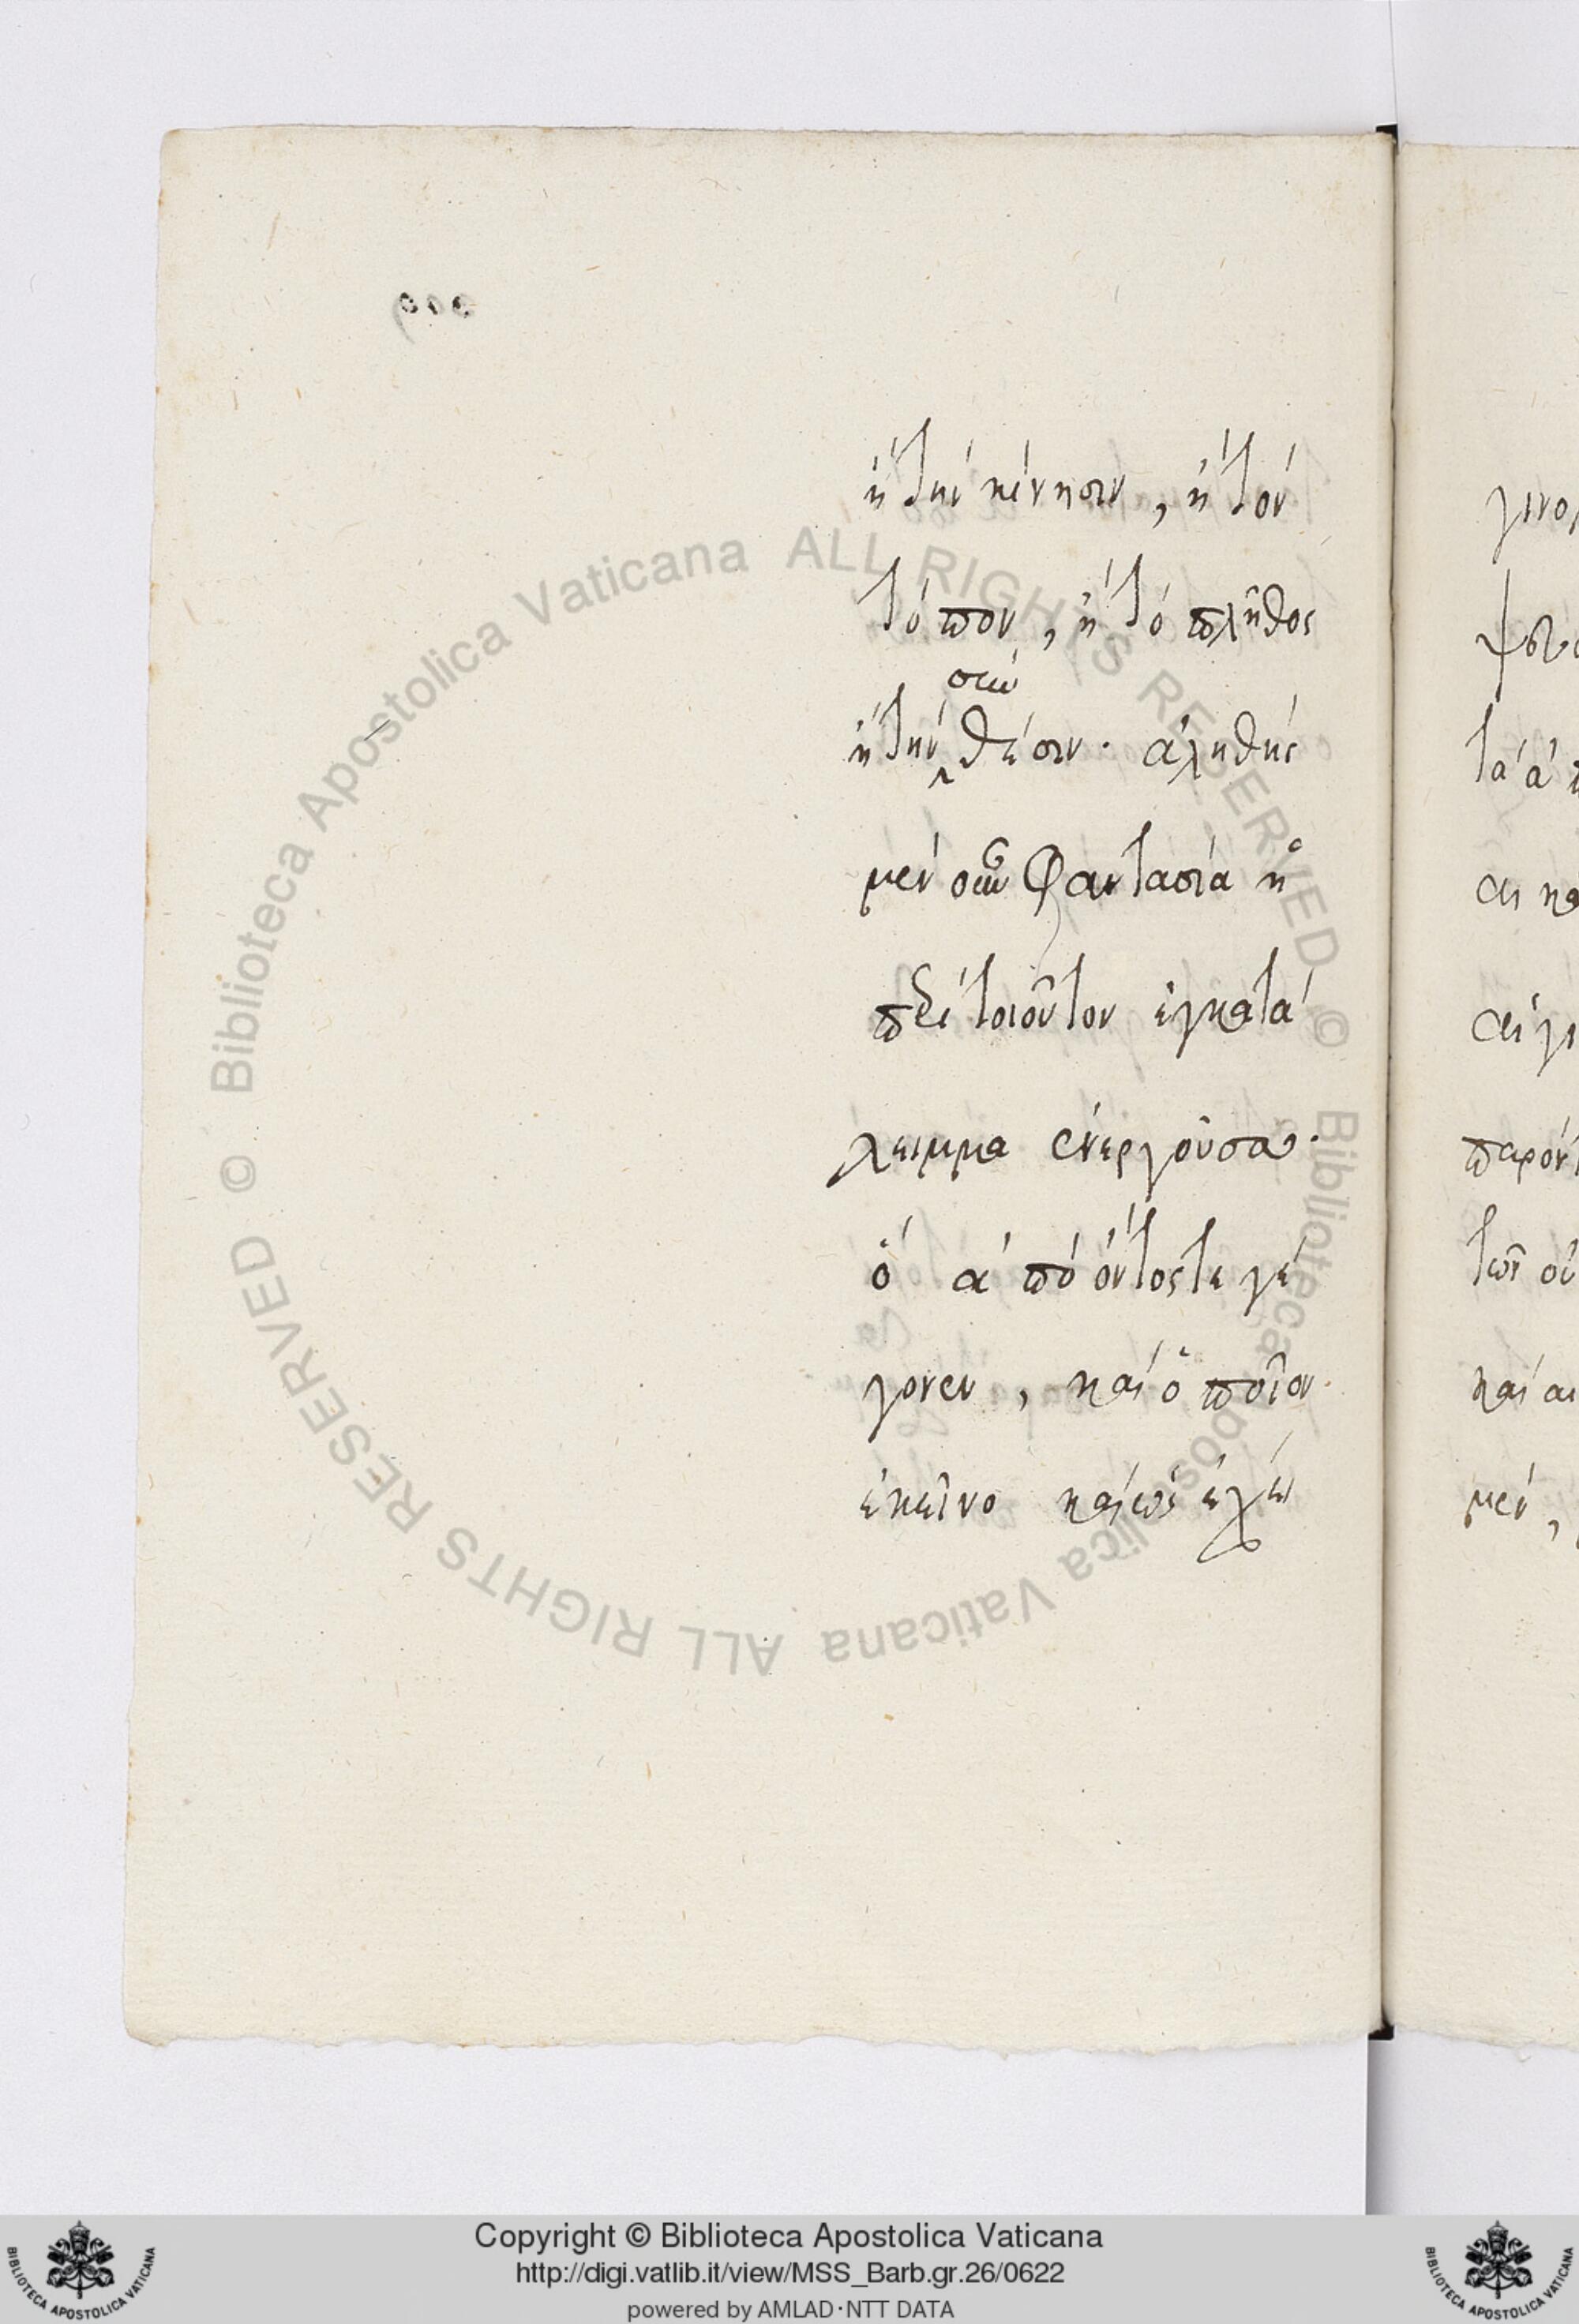 ἢ τὴν κίνησιν, ἢ τὸν
τόπον, ἢ τὸ πλῆθος
συν
ἢ τὴν θέσιν. ἀληθὴς
μὲν οὖν φαντασία ἡ
περὶ τοιοῦτον ἐγκατά
λειμμα ἐνεργοῦσα.
ὃ ἀπὸ ὄντος τε γέ
γονεν, καὶ ὁποῖον
ἐκεῖνο καὶ ὡς ἔχει
γινο
τὰ ἀ
αι κα
παρόν
καὶ αι
μέν,
© Biblioteca Apostolica Vaticana ALL RIGHTS RESERVED © Biblioteca Apostolica Vaticana ALL RIGHTS RESERVED
Copyright © Biblioteca Apostolica Vaticana
http://digi.vatlib.it/view/MSS_Barb.gr.26/0622
powered by AMLAD·NTT DATA
BIBLIOTECA APOSTOLICA VATICANA
BIBLIOTECA APOSTOLICA VATICANA